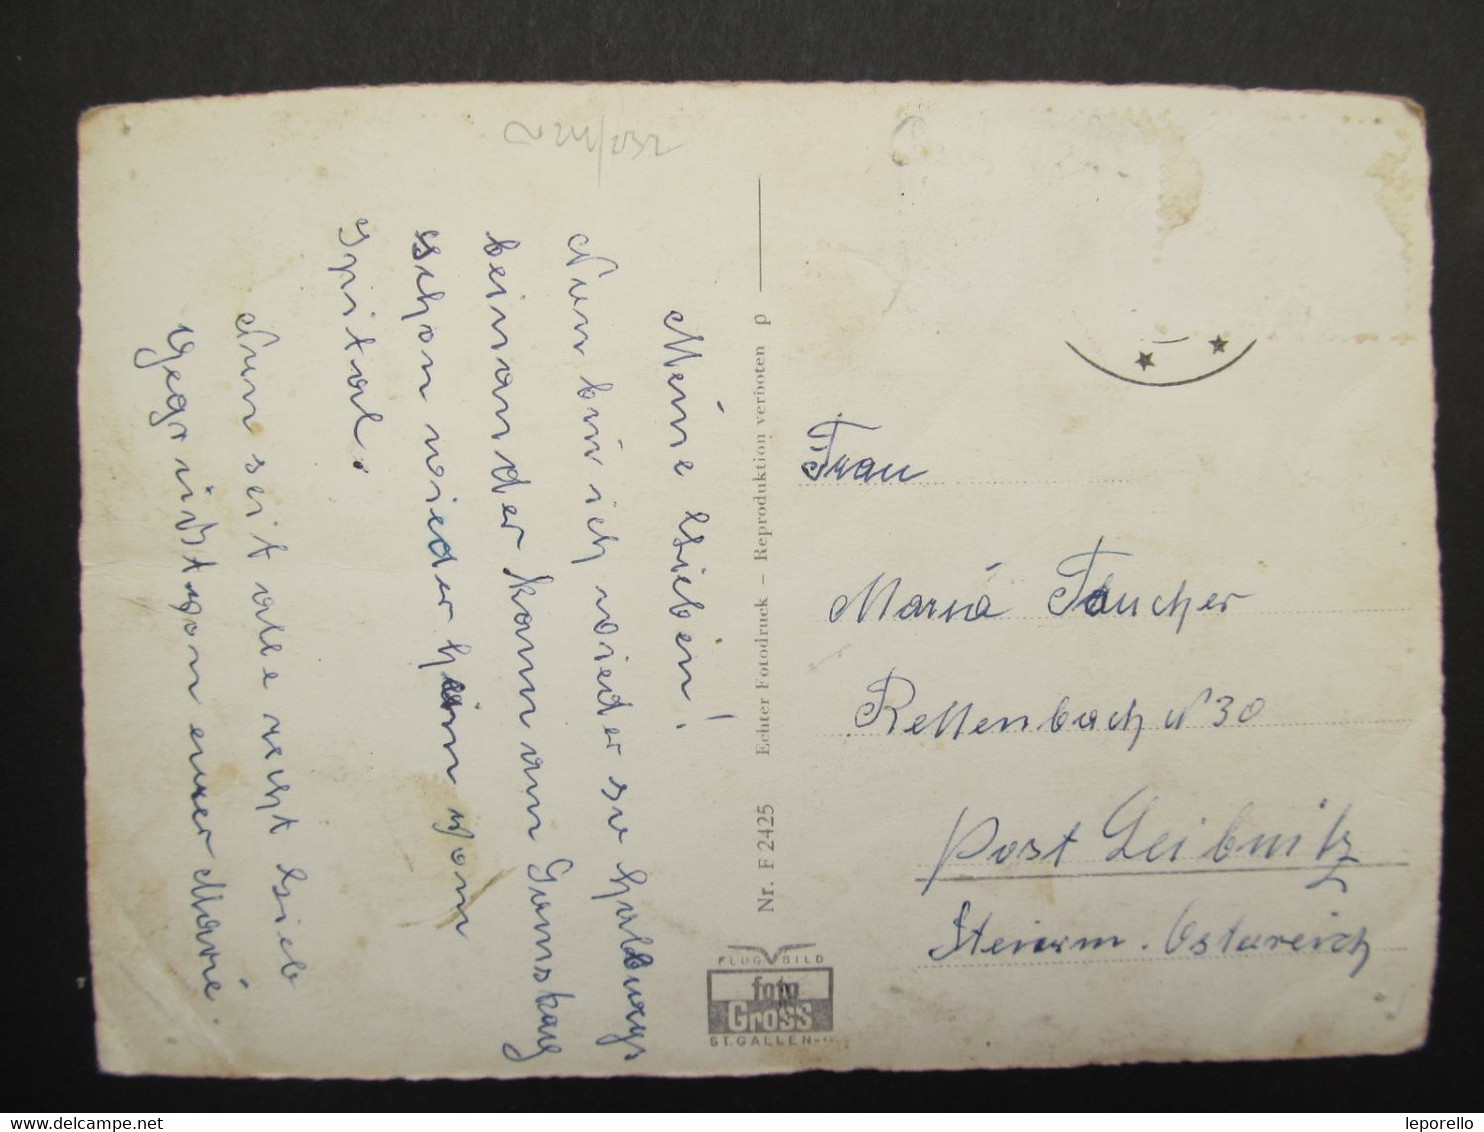 Meine Lieben!
Nun bin ich wieder so halbwegs
beinander kam am Samstag
schon wieder heim vom
Spital.
Nun seit alle recht Lieb
Gegrüßt von eurer Marie.
Nr. F 2425 Echter Fotodruck – Reproduktion verboten p
FLUG BILD
foto
Gross
ST. GALLEN
Frau
Maria Taucher
Rettenbach N 30
Post Leibnitz
Steierm. Österreich
leporello